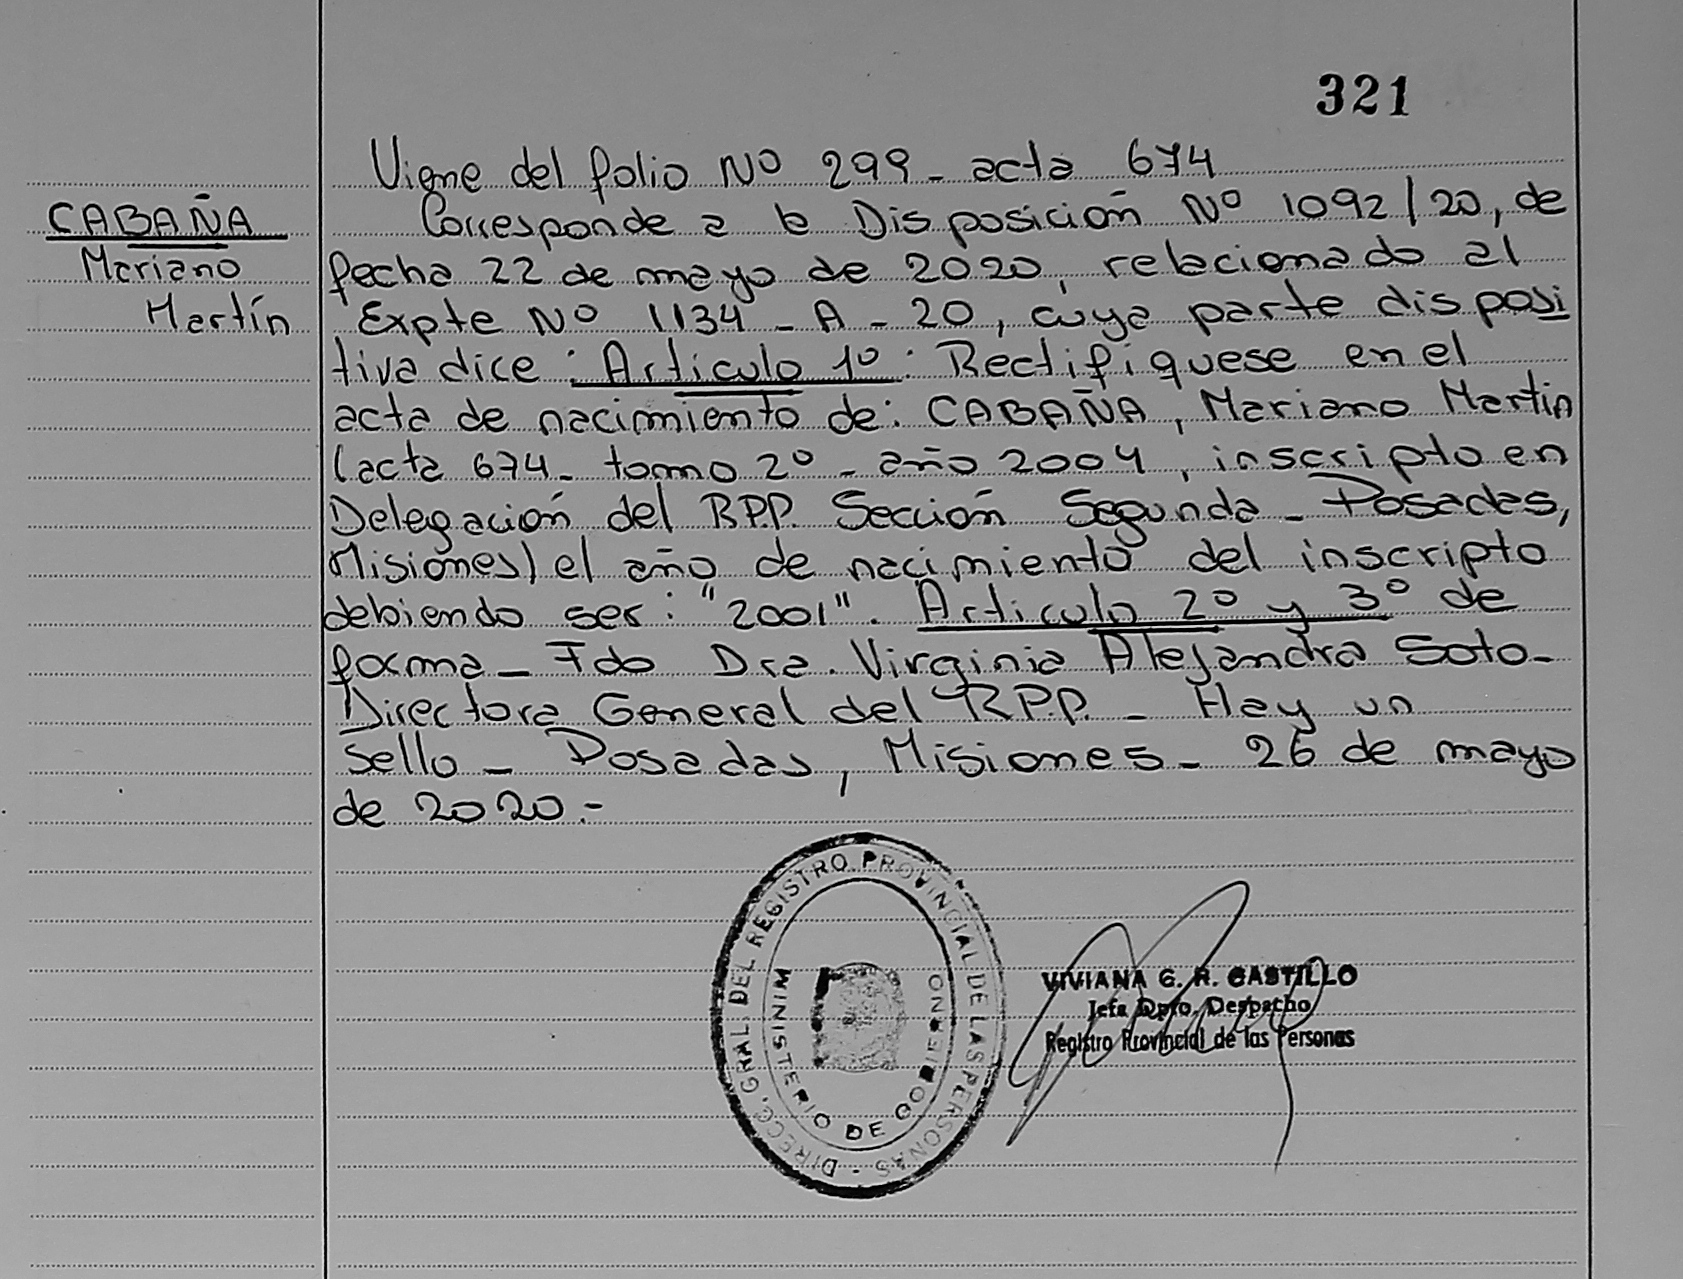 321
Viene del folio Nº 299 - acta 674
CABAÑA
Mariano
Martín
Corresponde a la Disposición Nº 1092/20, de
fecha 22 de mayo de 2020, relacionado al
Expte Nº 1134 - A - 20, cuya parte disposi
tiva dice: Artículo 1º: Rectifíquese en el
acta de nacimiento de: CABAÑA, Mariano Martín
(acta 674 - tomo 2º - año 2004, inscripto en
Delegación del R.P.P. Sección Segunda - Posadas,
Misiones) el año de nacimiento del inscripto
debiendo ser: "2001". Artículo 2º y 3º de
forma - Fdo Dra. Virginia Alejandra Soto -
Directora General del R.P.P. - Hay un
sello - Posadas, Misiones - 26 de mayo
de 2020.-
DIRECC. GRAL. DEL REGISTRO PROVINCIAL DE LAS PERSONAS -
MINISTERIO DE GOBIERNO
VIVIANA G. R. CASTILLO
Jefa Dpto. Despacho
Registro Provincial de las Personas